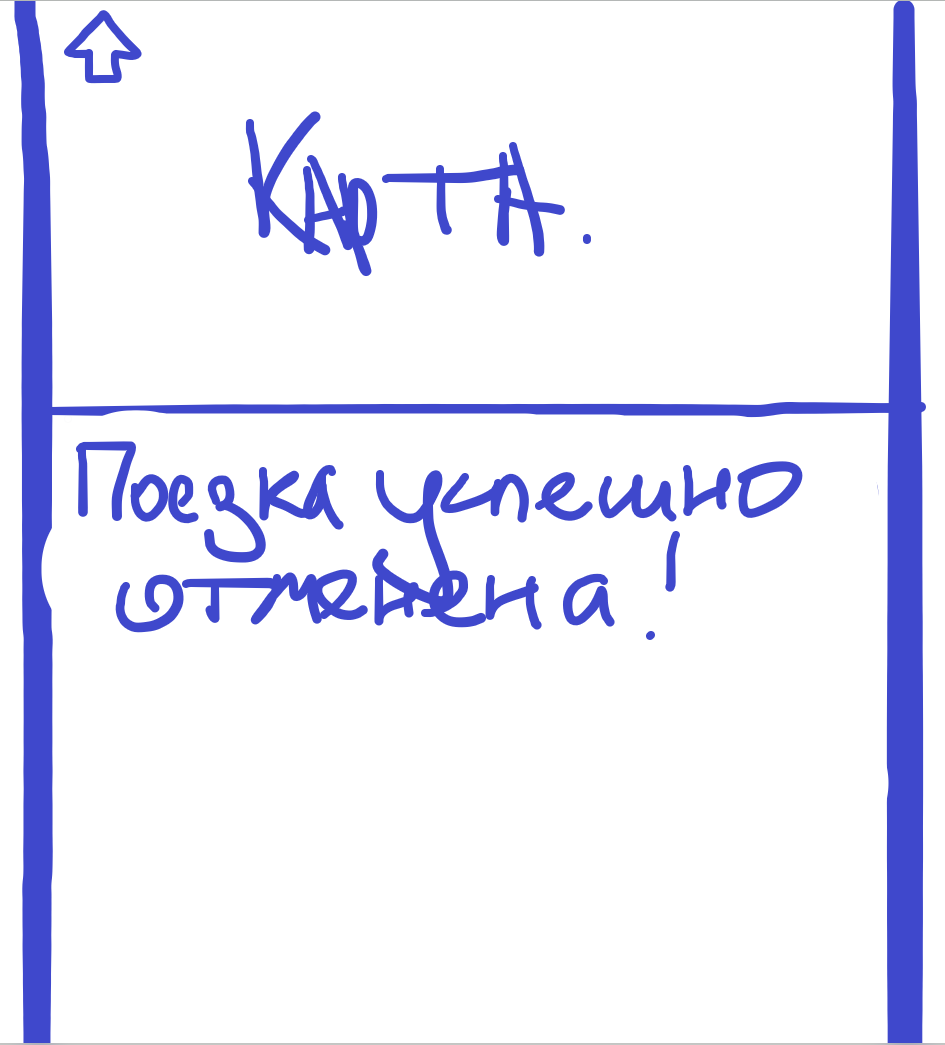 КАРТА.
Поезка успешно
отменена!